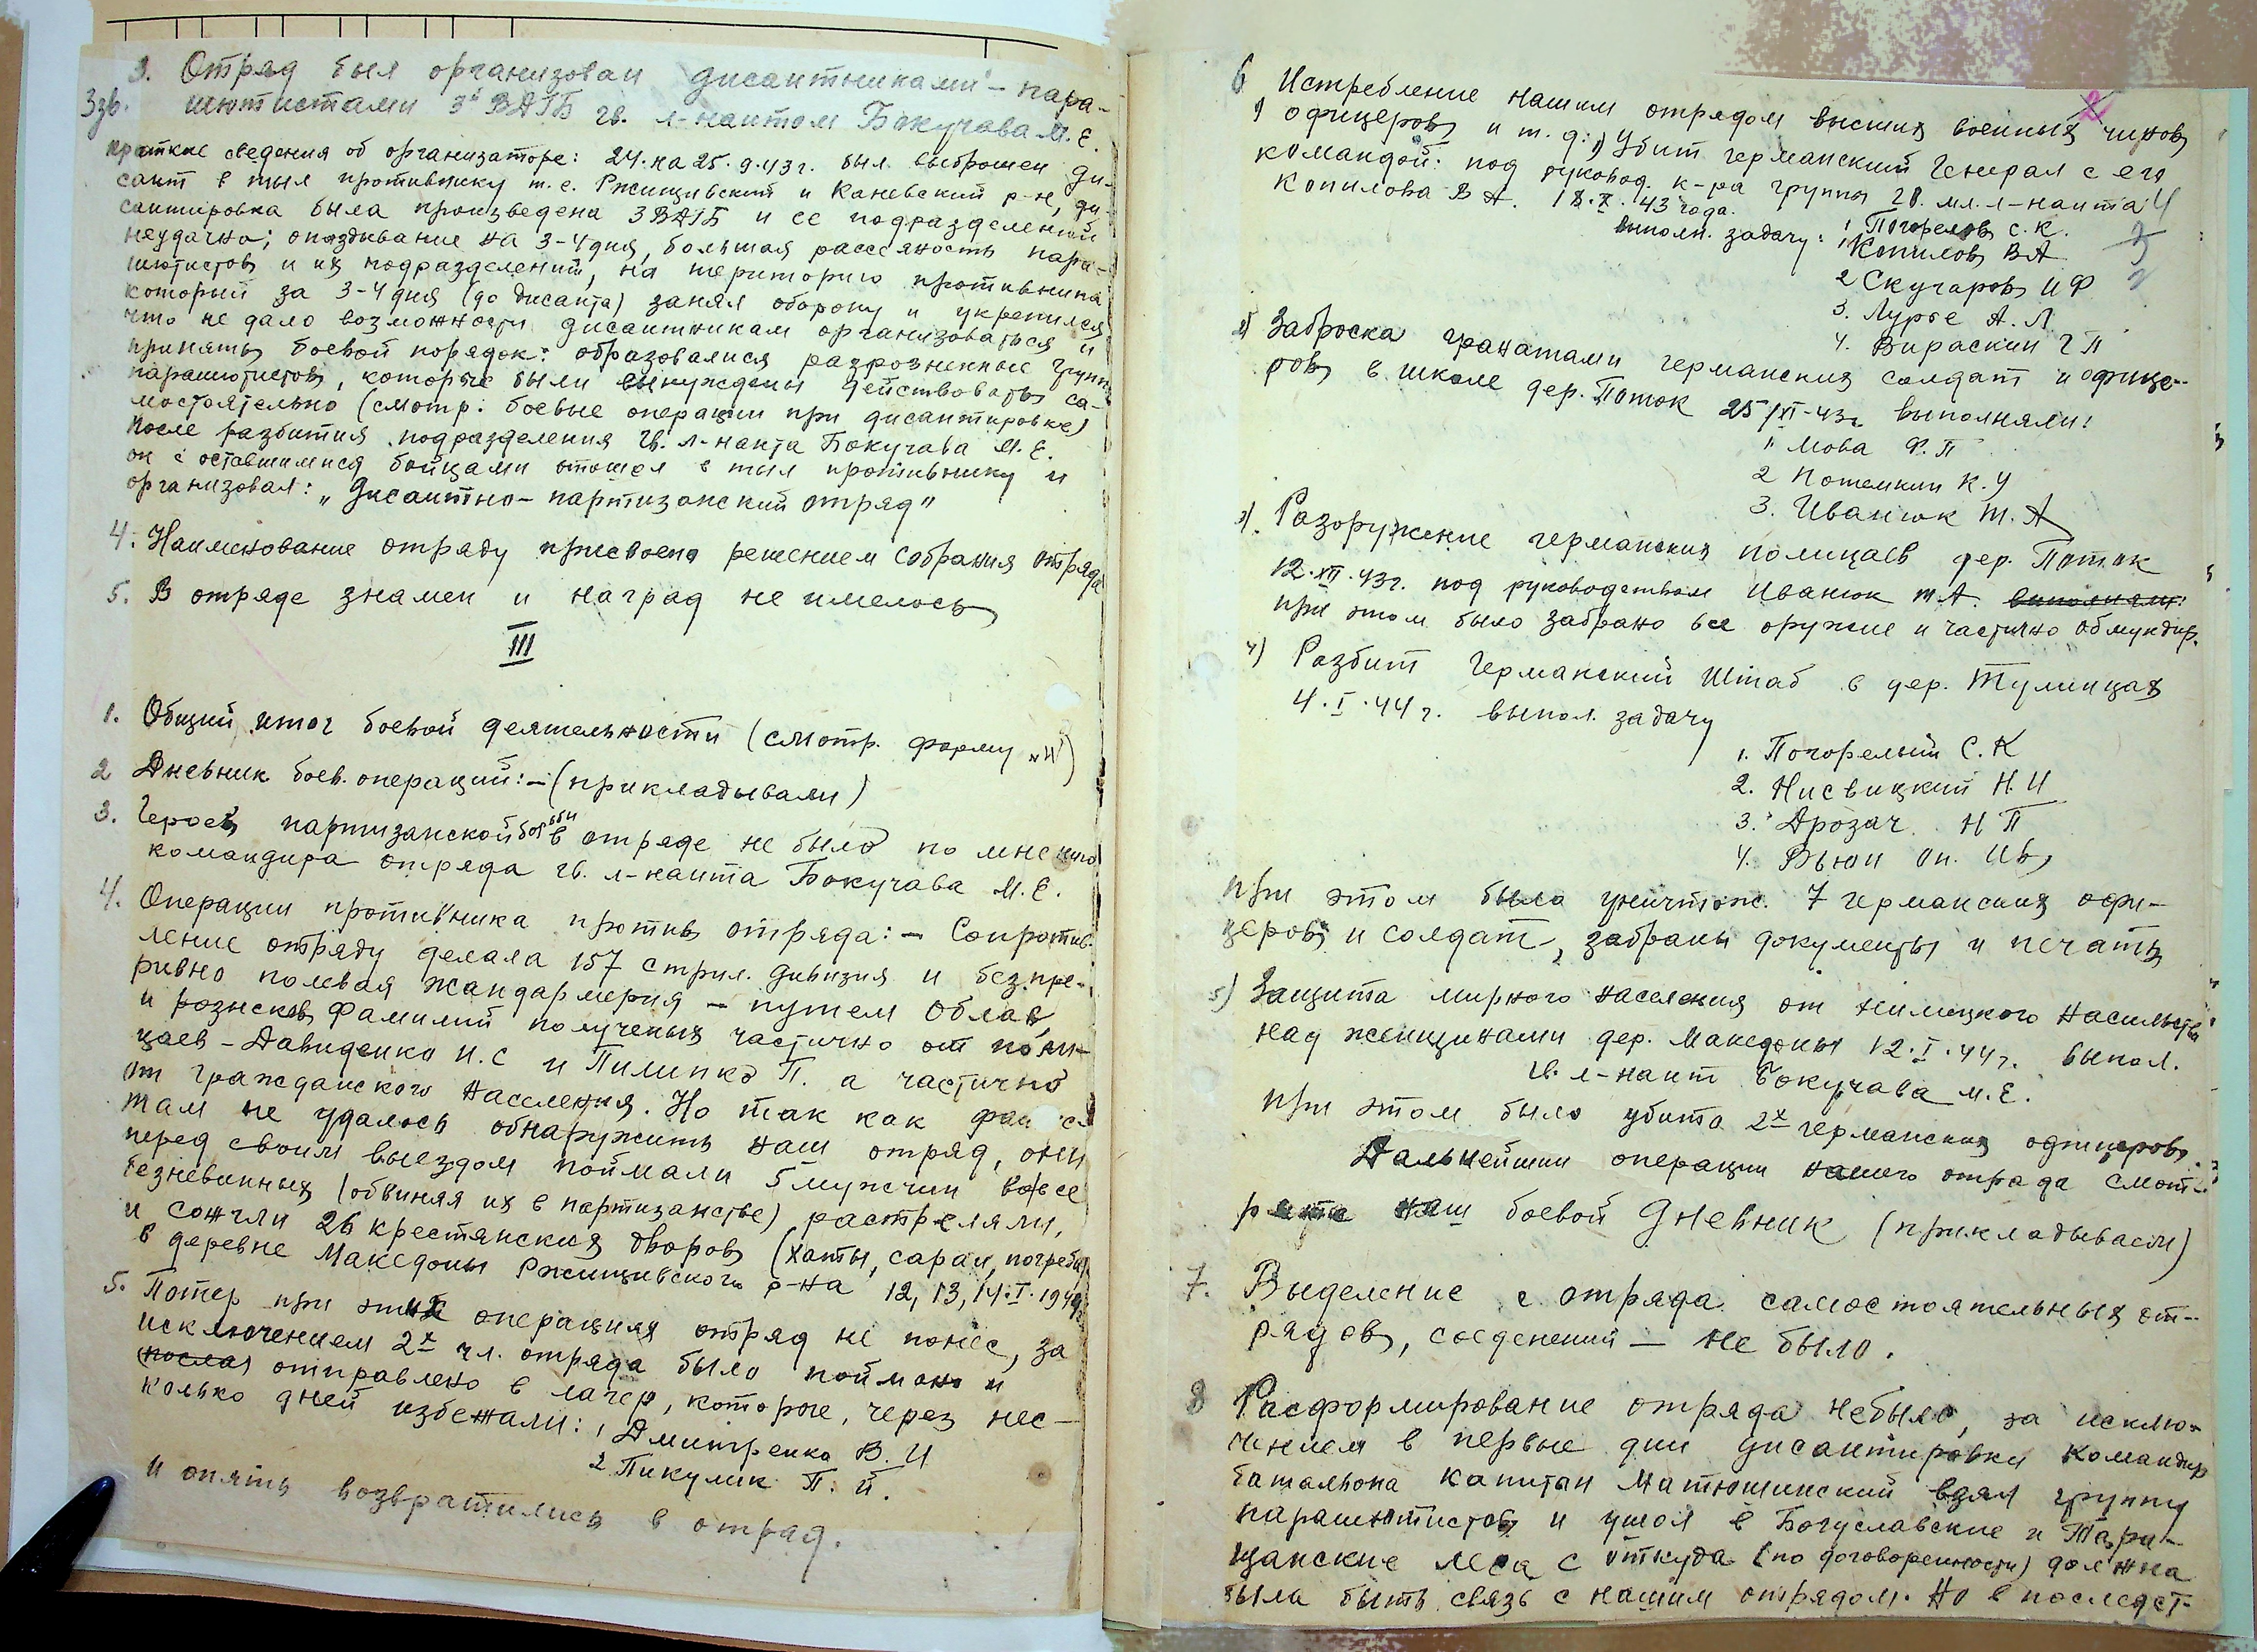 3. Отряд был организован дисантниками - пара-
Ззв. шютистами 3й ВДГБ гв. л-нантом Бокучава М. Е.
Краткие сведения об организаторе: 24. на 25. 9. 43 г. был выброшен ди-
сант в тыл противнику т. е. Ржищивский и Каневский р-н, ди-
сантировка была произведена 3 ВДГБ и ее подразделений
неудачно; опаздывание на 3-4 дня, большая рассеяность пара-
шютистов и их подразделений, на територию противника
который за 3-4 дня (до дисанта) занял оборону и укрепился
что не дало возможности дисантникам организоваться и
принять боевой порядок: образовалися разрозненные группы
парашютистов, которые были вынуждены действовать са-
мостоятельно (смотр. боевые операции при дисантировке)
После разбития подразделения гв. л-нанта Бокучава М. Е.
он с оставшимися бойцами отошел в тыл противнику и
организовал: „Дисантно - партизанский отряд"
4. Наименование отряду присвоено решением собрания отряда
5. В отряде знамен и наград не имелось
III
1. Общий итог боевой деятельности (смотр. форму „4")
2 Дневник боев. операций: - (прикладывали)
3. Героев партизанской борьби в отряде не было по мнению
командира отряда гв. л-нанта Бокучава М. Е.
4. Операции противника против отряда: - Сопротив-
ление отряду делала 157 стрил. дивизия и безпре-
ривно полевая жандармерия - путем облав,
и рознсков фамилий полученых частично от поли-
цаев - Давиденко И. С и Пилипко П. а частично
от гражданского населения. Но так как фашис
там не удалось обнаружить наш отряд, они
перед своим выездом поймали 5 мужчин вовсе
безневинных (обвиняя их в партизанстве) растреляли,
и сожгли 26 крестянских дворов (хаты, сараи, погреба)
в деревне Македоны Ржищивского р-на 12, 13, 14. I. 1944
5. Потер при этих операциях отряд не понес, за
исключением 2х чл. отряда было поймано и
отправлено в лагер, которые, через нес-
колько дней избежали: 1 Дмитренко В. И
2 Пикулик П. И.
и опять возвратились в отряд.
6 Истребление нашим отрядом высших военных чинов
офицеров и т. д: 1) Убит германский Генерал с его
командой: под руковод. к-ра группы гв. мл. л-нанта
Копилова В А. 18. X. 43 года.
Выполн. задачу: 1 Погорелов С. К.
1 Копилов В А
2 Скучаров И Ф
3. Лурье А. Л.
4. Вираскин Г П
2) Заброска гранатами германских солдат и офице-
ров в школе дер. Поток 25/XI-43г выполняли:
1) Мова Ф. П
2 Потемкин К. У
3. Иванюк Т. А
3) Разоружение германских полицаев дер. Поток
12. XII. 43г. под руководством Иванюк Т А. выполняли:
при этом было забрано все оружие и частично обмундир.
4) Разбит Германский Штаб в дер. Тулинцах
4. I. 44 г. выпол. задачу
1. Погорелый С. К
2. Нисвицкий Н. И
3. Дрозач Н П
4. Вьюн Он. Ив
при этом было уничтож. 7 германских офи-
церов и солдат, забраны документы и печать
5) Защита мирного населения от нимецкого насильства
над женщинами дер. Македоны 12. I. 44 г. выпол.
гв. л-нант Бокучава М. Е.
при этом было убито 2х германских офицеров.
Дальнейшии операции нашего отряда смот-
рите наш боевой Дневник (прикладываем)
7. Выделение с отряда самостоятельных от-
рядов, соеденений - не было.
8 Расформирование отряда небыло, за исклю-
чением в первые дни дисантировки командир
батальона капитан Матюшинский взял группу
парашютистов и ушол в Богуславские и Тара-
щанские леса с откуда (по договоренности) должна
была быть связь с нашим отрядом. Но в последст-